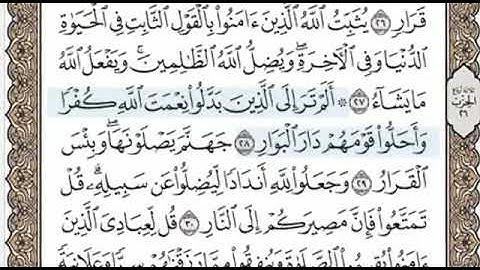 قَرَارٍ ٢٦ يُثَبِّتُ ٱللَّهُ ٱلَّذِينَ ءَامَنُوا۟ بِٱلْقَوْلِ ٱلثَّابِتِ فِى ٱلْحَيَوٰةِ
ٱلدُّنْيَا وَفِى ٱلْـَٔاخِرَةِ ۖ وَيُضِلُّ ٱللَّهُ ٱلظَّـٰلِمِينَ ۚ وَيَفْعَلُ ٱللَّهُ
مَا يَشَآءُ ٢٧ ۞ أَلَمْ تَرَ إِلَى ٱلَّذِينَ بَدَّلُوا۟ نِعْمَتَ ٱللَّهِ كُفْرًا
وَأَحَلُّوا۟ قَوْمَهُمْ دَارَ ٱلْبَوَارِ ٢٨ جَهَنَّمَ يَصْلَوْنَهَا ۖ وَبِئْسَ
ٱلْقَرَارُ ٢٩ وَجَعَلُوا۟ لِلَّهِ أَندَادًا لِّيُضِلُّوا۟ عَن سَبِيلِهِۦ ۗ قُلْ
تَمَتَّعُوا۟ فَإِنَّ مَصِيرَكُمْ إِلَى ٱلنَّارِ ٣٠ قُل لِّعِبَادِىَ ٱلَّذِينَ
ءَامَنُوا۟ يُقِيمُوا۟ ٱلصَّلَوٰةَ وَيُنفِقُوا۟ مِمَّا رَزَقْنَـٰهُمْ سِرًّا وَعَلَانِيَةً
الحزب
٢٦